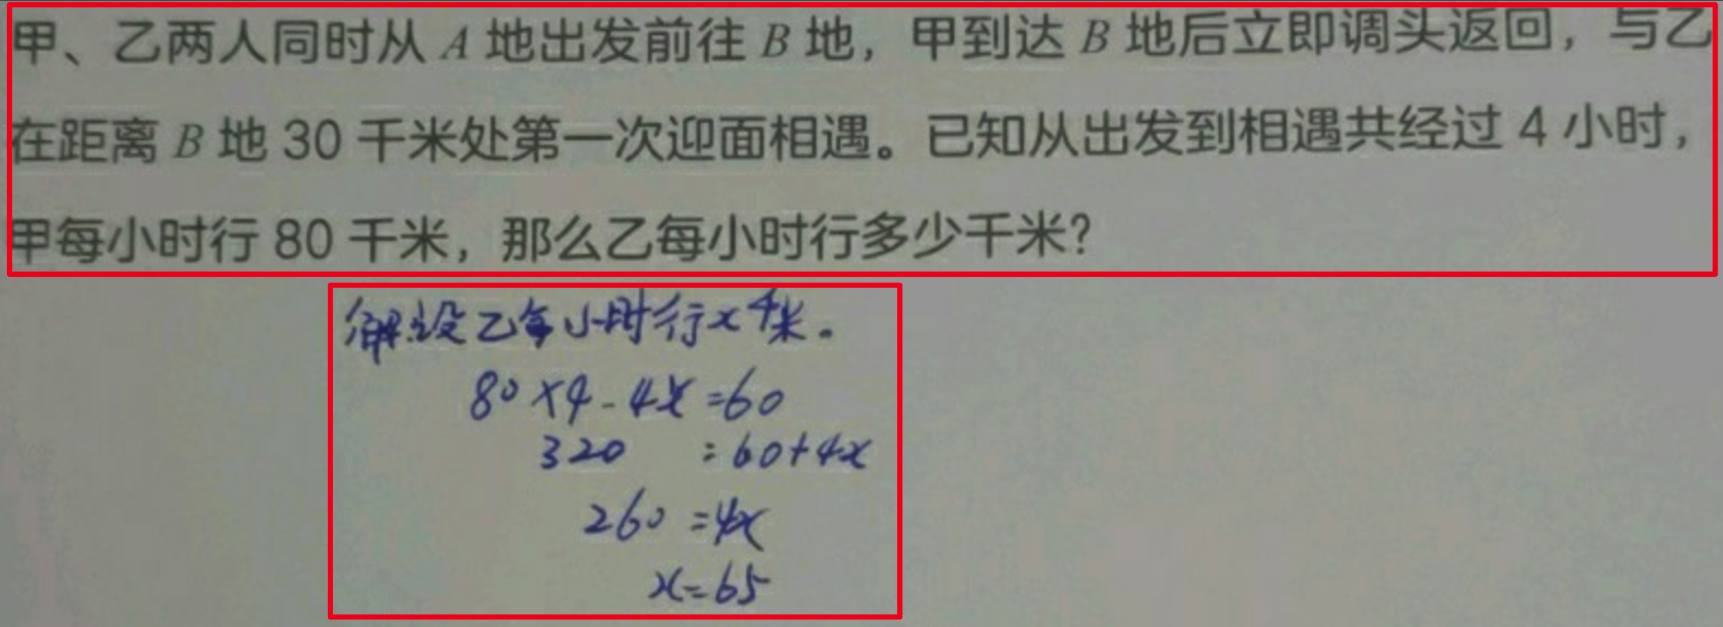 甲、乙两人同时从 A 地出发前往 B 地，甲到达 B 地后立即调头返回，与乙
在距离 B 地 30 千米处第一次迎面相遇。已知从出发到相遇共经过 4 小时，
甲每小时行 80 千米，那么乙每小时行多少千米？
解:设乙每小时行x千米。
80×4-4x=60
320 =60+4x
260=4x
x=65